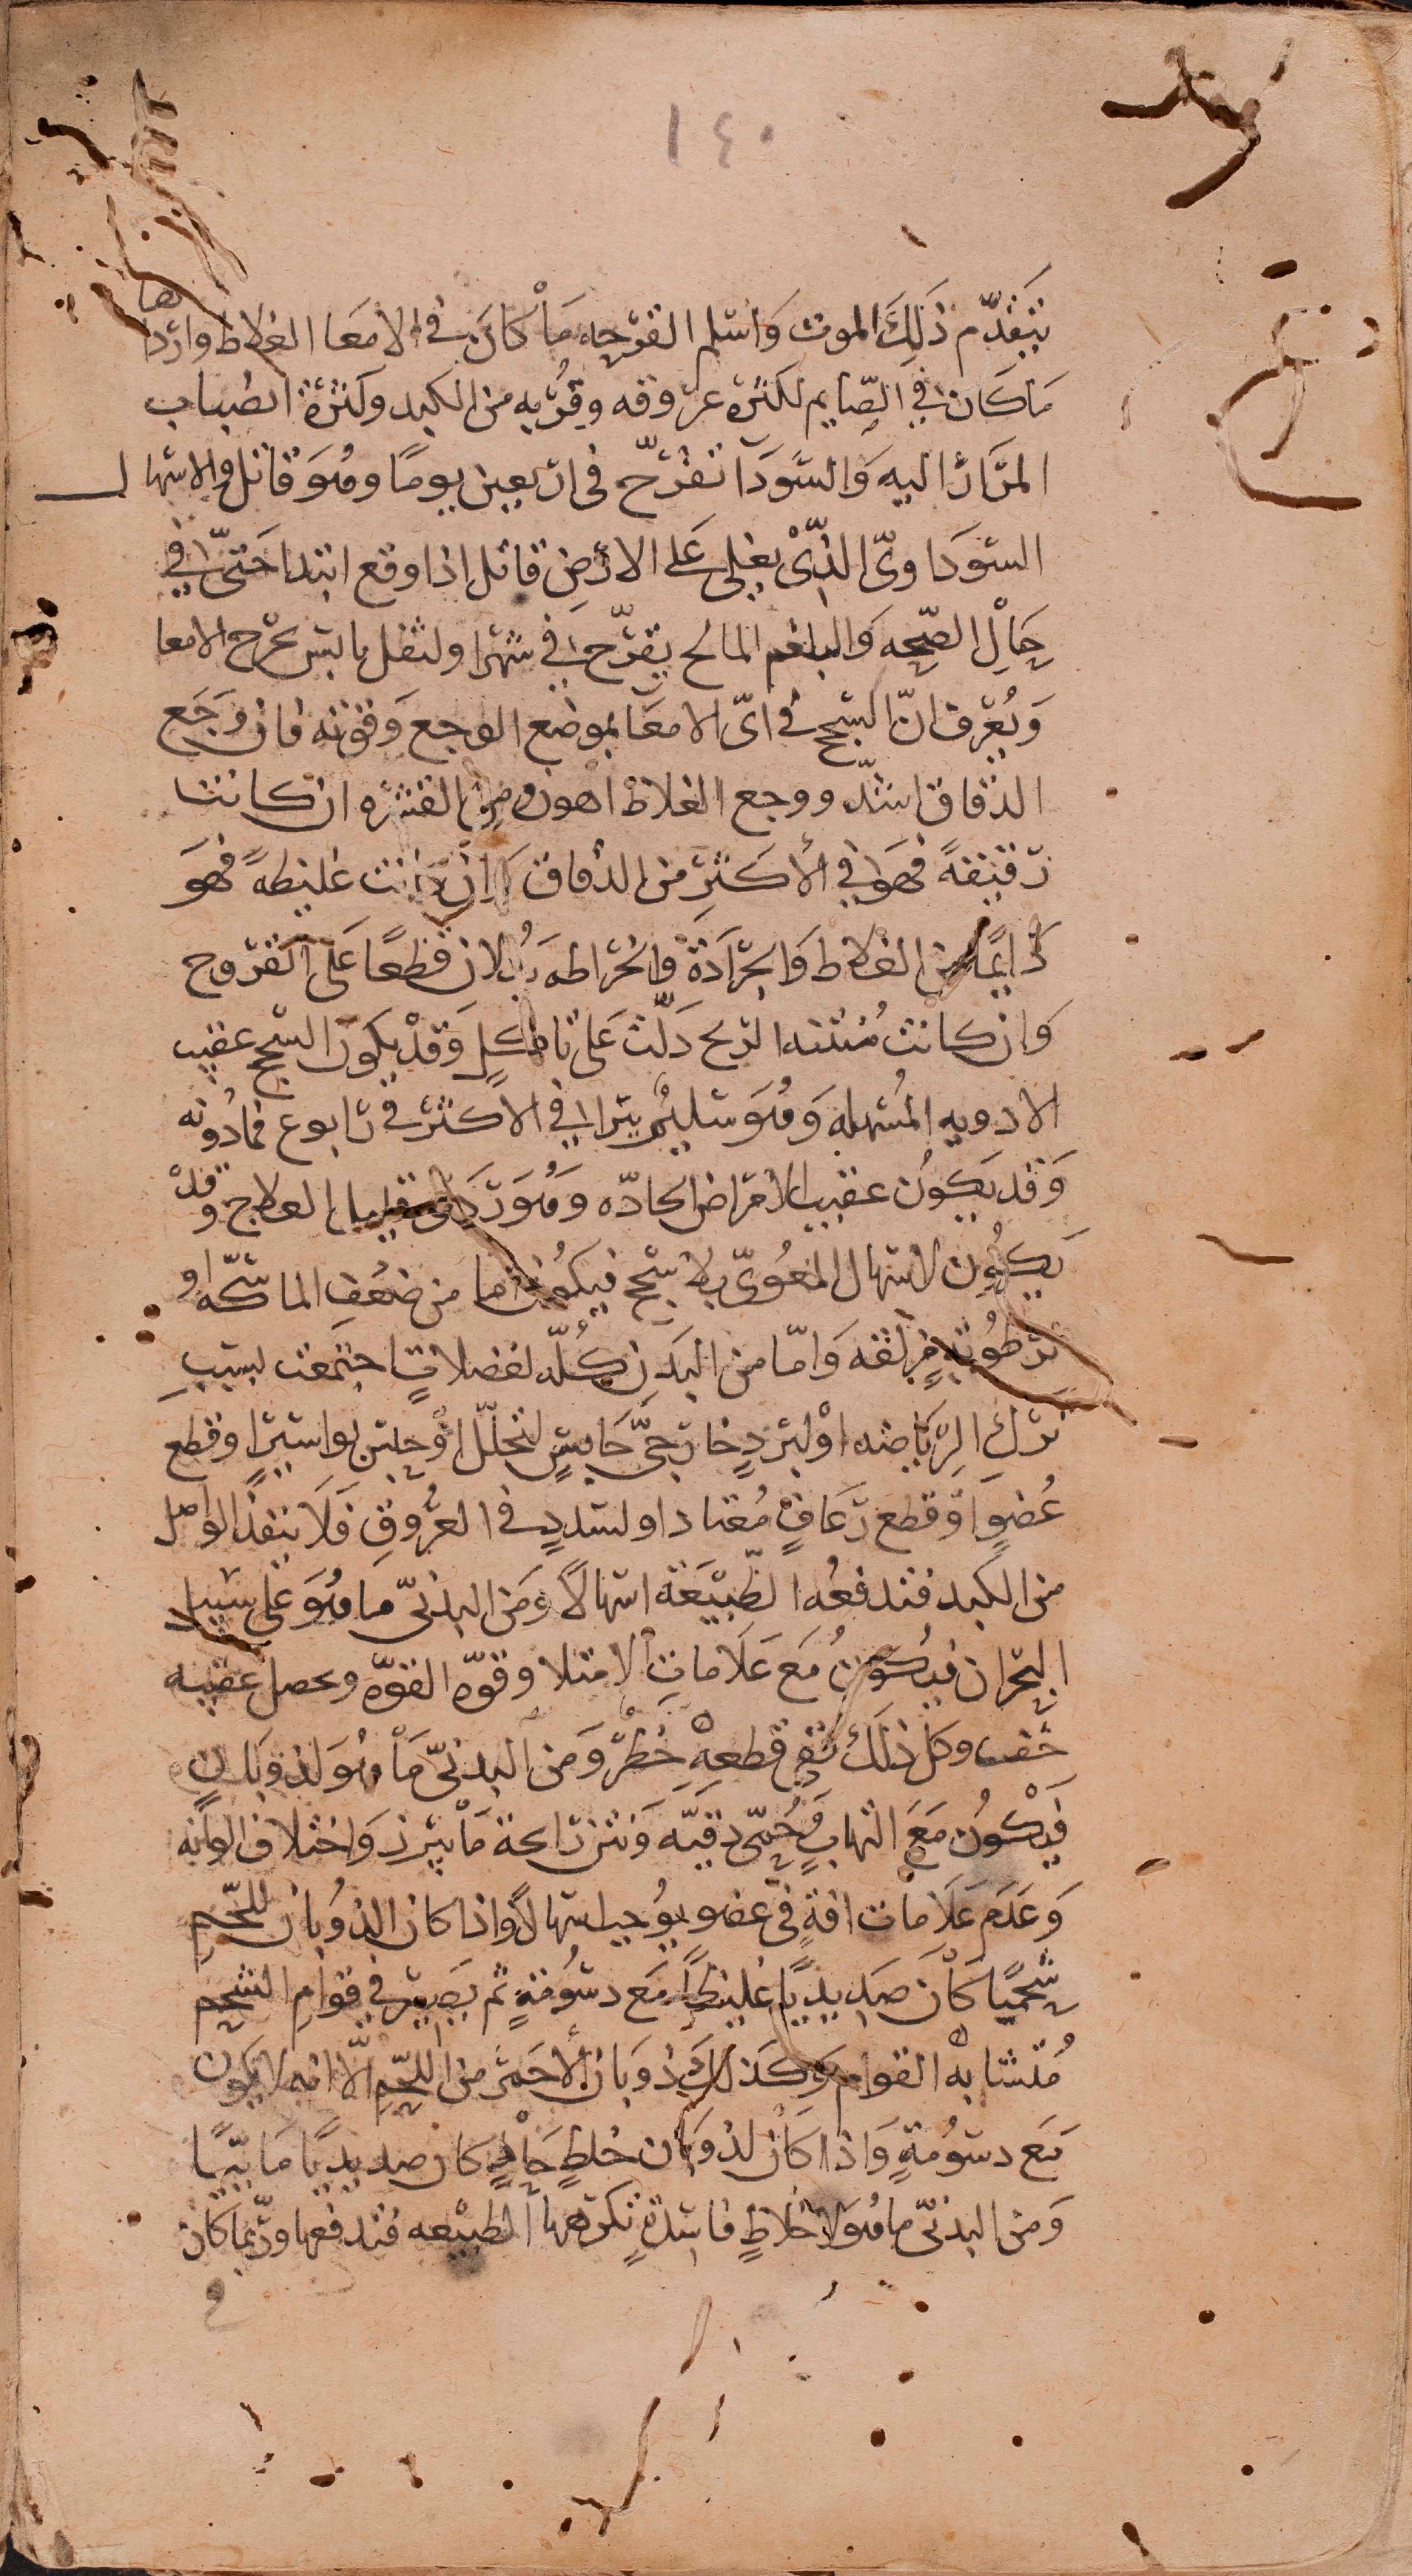 ١٤٠
يتقدّم ذَلِكَ الموت وَاسلم القرحه مَا كانَ في الامعَا الغلاظ واردا
ها
مَا كَان في الصّايم لكثرة عروقه وقُربه من الكبد وكثرة انصباب
المرَار اليه وَالسَّودَا تقرّح في اربعين يومًا وهُوَ قاتل والاسهال
السَّودَاويّ الذّي يغلى عَلى الارض قاتل اذا وقع ابتدا حَتّى في
حَالِ الصّحه وَالبلغم المالح يقرّح في شهر اولثفل يابس يجرح الامعا
وَيُعرف انّ السّحج في ايّ الامعَا بموضع الوجع وَقوّته فان وَجَع
الدّقاق اشدّ ووجع الغلاظ اهون ومن القشره ان كانت
رَقيقةً فهَو في الأكثرِ من الدّقاق وان كانت غليظهً فهوَ
دَايمًا من الغلاظ وَالجرَادَة وَالخرَاطه يَدُلان قطعًا عَلى القروح
وَان كانت مُنتنه الريح دَلّت عَلى تاكلٍ وَقدْ يكون السّحج عقيب
الادويه المُسهله وَهُوَ سليمٌ يبرا في الاكثر في اسابوع فمادُونه
وَقد يَكُون عقيب الامرَاض الحادّه وَهُوَ رَدي قليل العلاج وقدْ
يَكُون الاسهال المعويّ بلا سحج فيكُون اما من ضعْف الماسكه او
رَطُوبَةٍ مزلقه وَامّا من البَدَن كُلّه لفضلاتٍ اجتمعت لسببِ
ترْك الرّيَاضه اوْ لبَردٍ خارجيّ حَابسٍ لتحلّل اوْ حبس بواسيرٍ او قطع
عُضوٍ اوْ قطع رُعَافٍ مُعتاد او لسددٍ في العُروقِ فَلا ينفذ الواصل
من الكبد فتدفعُه الطّبيْعَة اسهالًا وَمن البدنيّ مَا هُوَ عَلى سَبيل
البحرَان فيكونُ مَعَ عَلامات الامتلا وقوّه القوّه ويحصل عقيبه
خفّ وكل ذلك في قطعهِ خطرٌ وَمن البدنيّ مَا هُوَ لذوبَانٍ
فيكُون مَعَ التهابٍ وَحُمّى دقيّه وَنتن رَايحة مَا يبرز وَاختلاف الوانه
وَعَدَم عَلامات افةٍ في عضو يُوجب اسهالًا واذا كان الذوبان للّحمِ
شحميًا كَانَ صَديديًا غليظًا مَع دسُومةٍ ثم يصير في قوامِ الشحمِ
مُتشابه القوام وَكذلك ذوبَان الأحمَر من اللّحمِ الّا انه لا يكون
مَع دسُومةٍ وَاذا كان لذوبان خلطٍ حَادٍ كان صديديًا مَاييًا
وَمن البدنيّ مَا هُوَ لاخلاطٍ فاسدةٍ تكرهها الطبيْعه فتدفعها ورُبما كان